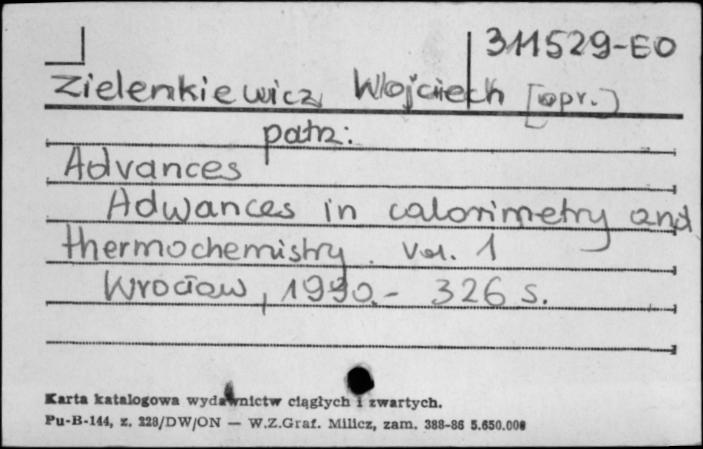 311529-EO
Zielenkiewicz, Wojciech [opr.]
patrz:
Advances
Adwances in calorimetry and
thermochemistry. Vol. 1
Wrocław, 1990.- 326 s.
Karta katalogowa wydawnictw ciągłych i zwartych.
Pu-B-144, z. 228/DW/ON — W.Z.Graf. Milicz, zam. 388-86 5.650.000